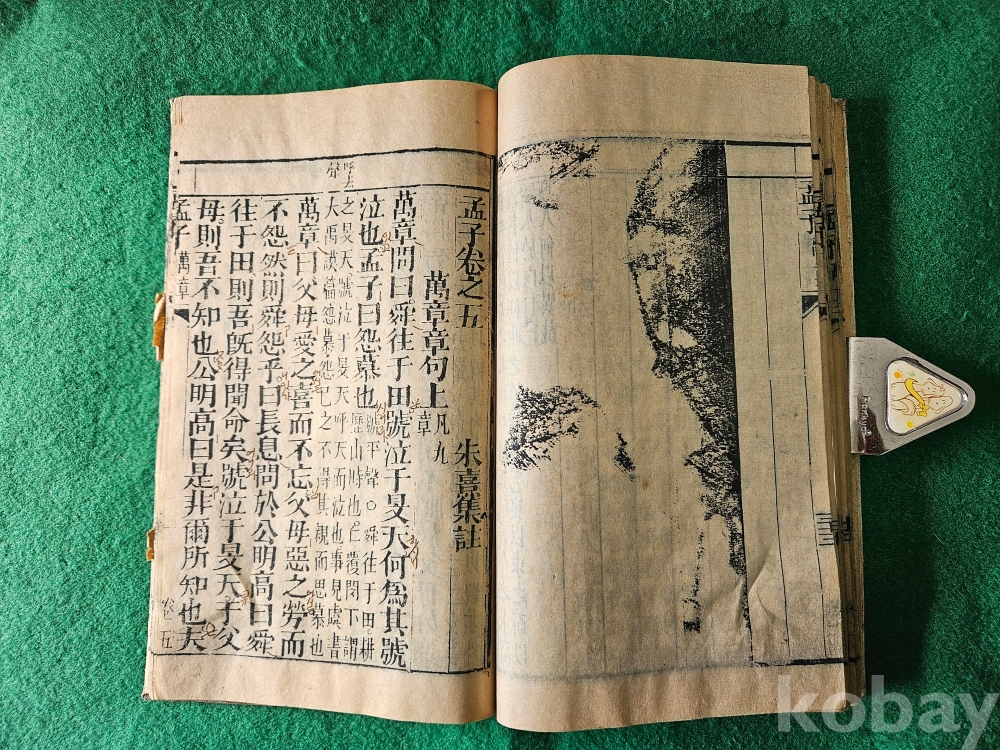 孟子
孟子卷之五
萬章章句上 凡九章 朱熹集註
萬章問曰舜往于田號泣于旻天何爲其號
泣也孟子曰怨慕也 號平聲○舜往于田耕
歷山時也仁覆閔下謂
之旻天號泣于旻天呼天而泣也事見虞書
大禹謨篇怨慕怨己之不得其親而思慕也
呼去聲
萬章曰父母愛之喜而不忘父母惡之勞而
不怨然則舜怨乎曰長息問於公明高曰舜
往于田則吾旣得聞命矣號泣于旻天于父
母則吾不知也公明高曰是非爾所知也夫
孟子 萬章 卷五
kobay